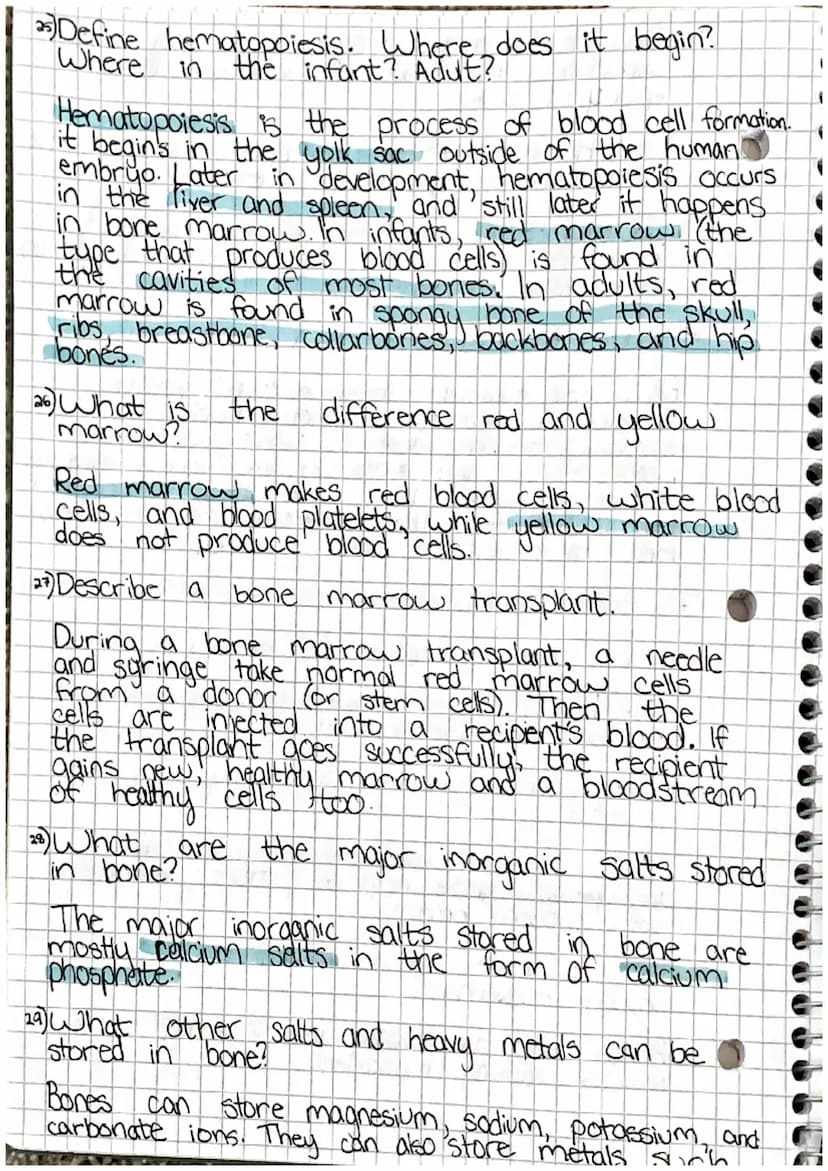 25) Define hematopoiesis. Where does it begin?
Where in the infant? Adut?
Hematopoiesis is the process of blood cell formation.
it begins in the yolk sac outside of the human
embryo. Later in development, hematopoiesis occurs
in the liver and spleen, and still later it happens
in bone marrow. In infants, red marrow (the
type that produces blood cells) is found in
the cavities of most bones. In adults, red
marrow is found in spongy bone of the skull,
ribs, breastbone, collarbones, backbones, and hip
bones.
26) What is the difference red and yellow
marrow?
Red marrow makes red blood cells, white blood
cells, and blood platelets, while yellow marrow
does not produce blood cells.
27) Describe a bone marrow transplant.
During a bone marrow transplant, a needle
and syringe take normal red marrow cells
from a donor (or stem cells). Then the
cells are injected into a recipient's blood. If
the transplant goes successfully, the recipient
gains new, healthy marrow and a bloodstream
of healthy cells too.
28) What are the major inorganic salts stored
in bone?
The major inorganic salts stored in bone are
mostly calcium salts in the form of calcium
phosphate.
29) What other salts and heavy metals can be
stored in bone?
Bones can store magnesium, sodium, potassium, and
carbonate ions. They can also store metals such